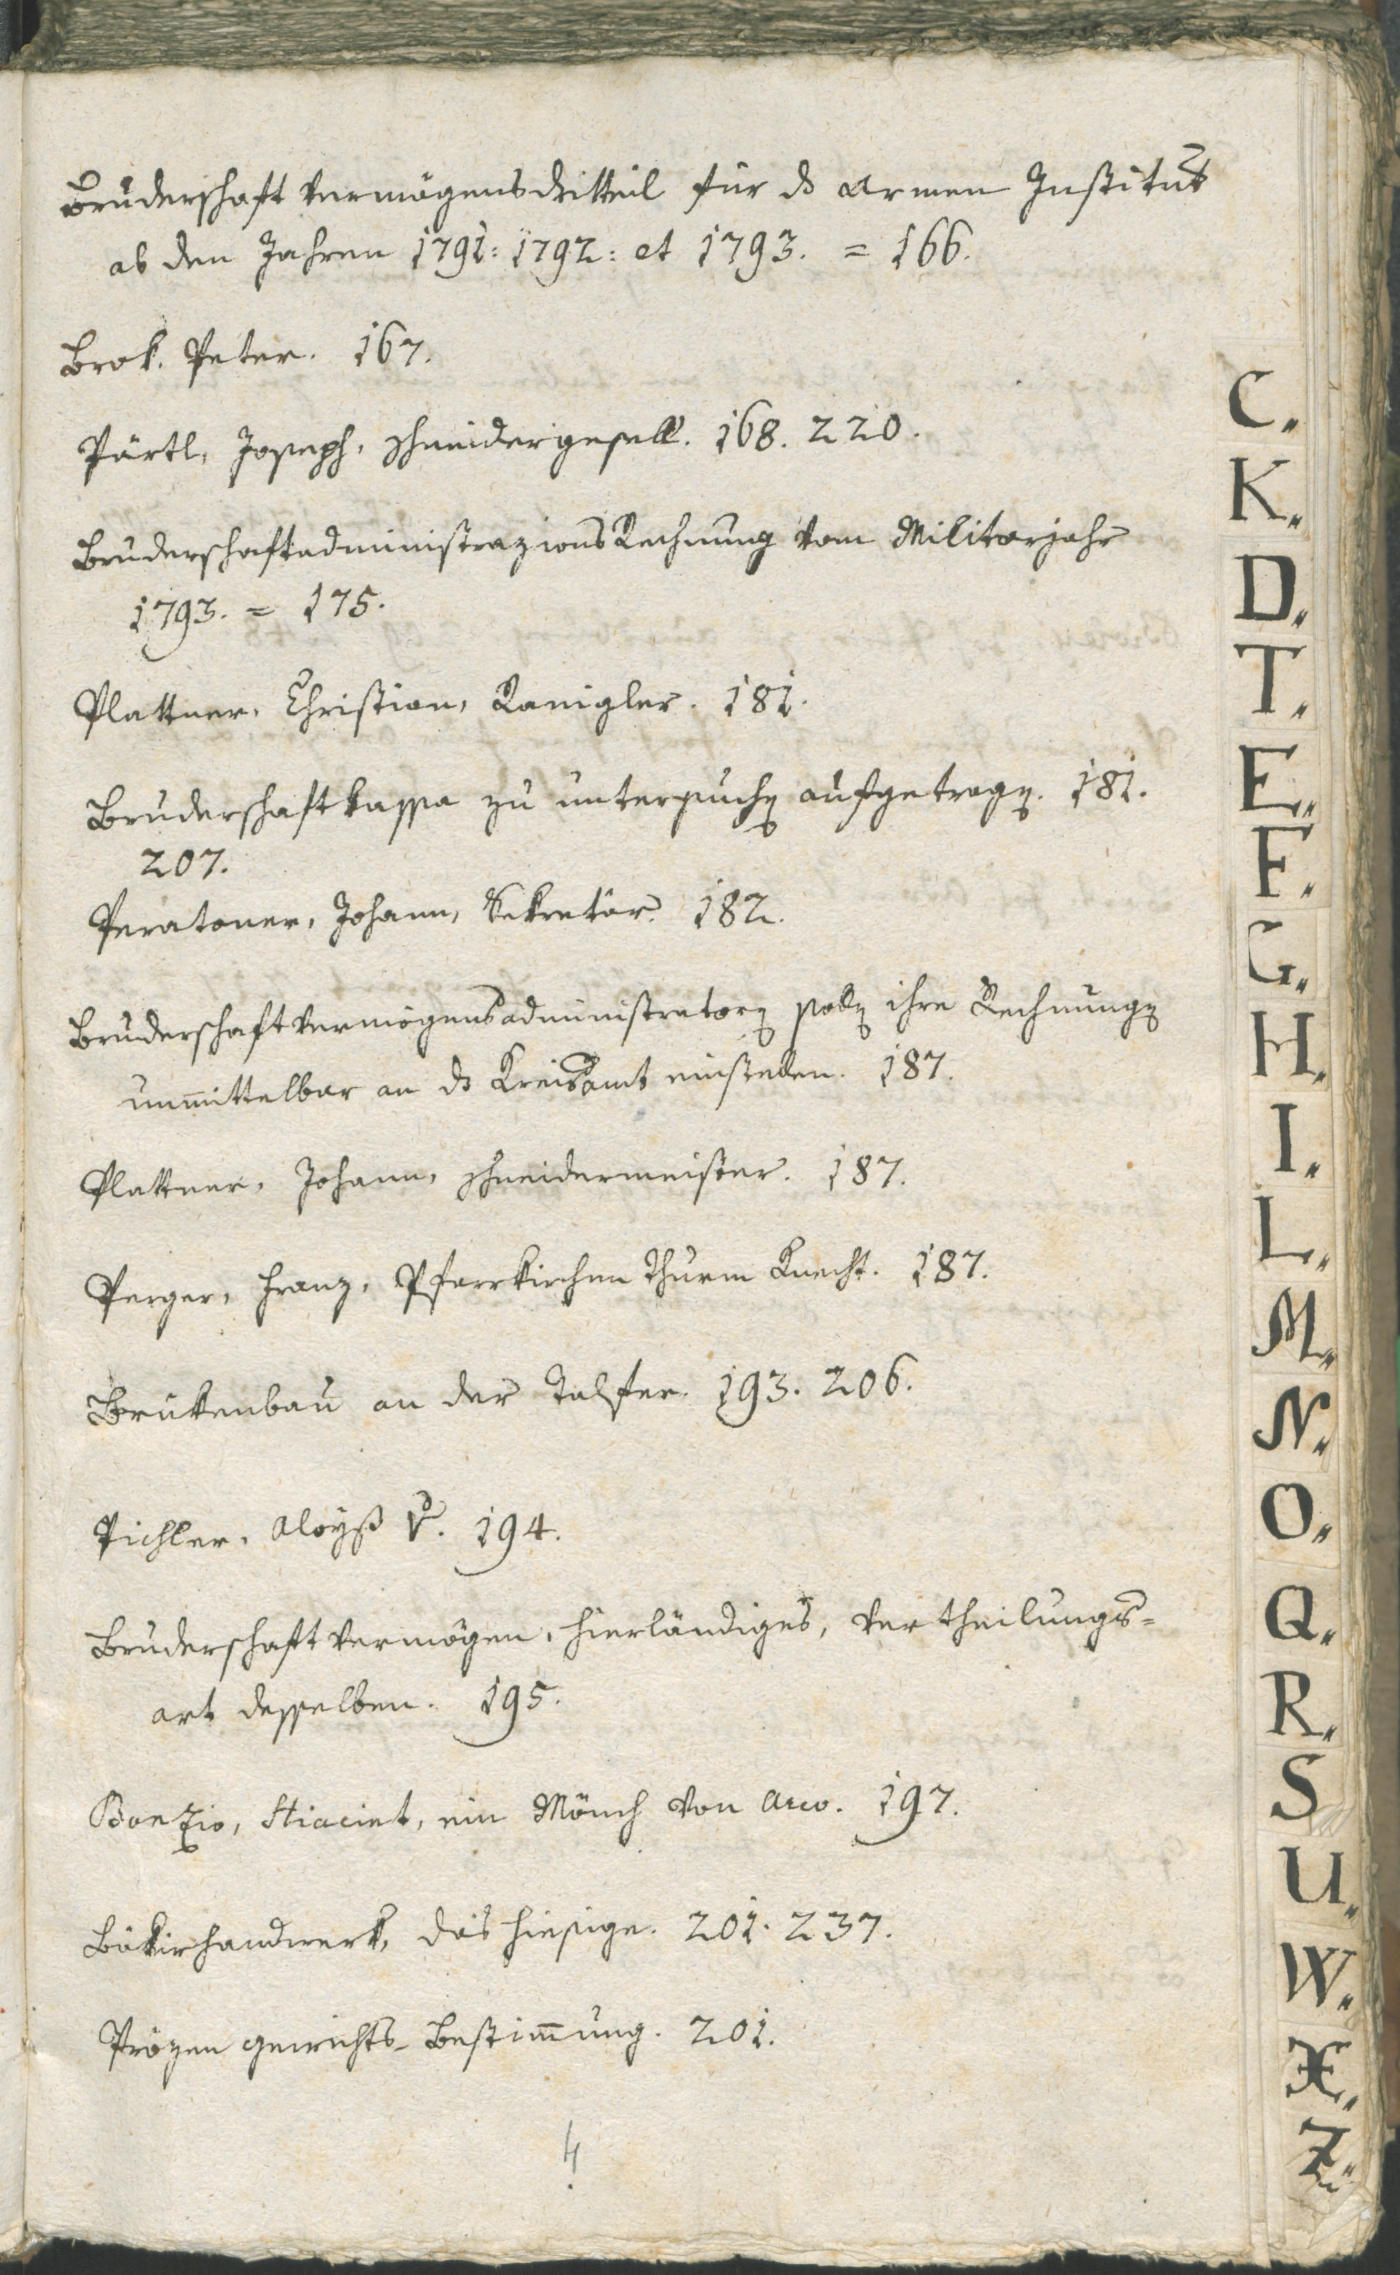 Bruderschaft vermögensdritteil für ds Armen Institut
ab den Jahren 1791: 1792: et 1793. = 166.
Brok. Peter. 167.
Pärtl, Joseph, schneidergesell. 168. 220.
BruderschaftadministrazionsRechnung vom Militarjahr
1793. = 175.
Plattner, Christian, Ranigler. 181.
Bruderschaftkassa zu untersuchen aufgetragen. 181.
207.
Peratoner, Johann, Sekretär. 182.
Bruderschaftvermögensadministratoren sollen ihre Rechnungen
unmittelbar an ds Kreisamt einstellen. 187.
Plattner, Johann, schneidermeister. 187.
Perger, Franz, Pfarrkirchen Thurm Knecht. 187.
Brukenbau an der Talfer. 193. 206.
Pichler, Aloyß V. 194.
Bruderschaft vermögen, hierländiges, vertheilungs=
art desselben. 195.
Bonzio, Hiacint, ein Mönch von Arco. 197.
Bäkirhandwerk, das hiesige. 201. 237.
Prözen gewichts-Bestimmung. 201.
4
C.
K.
D.
T.
E.
F.
G.
H.
I.
L.
M.
N.
O.
Q.
R.
S
U.
W.
X.
Z.